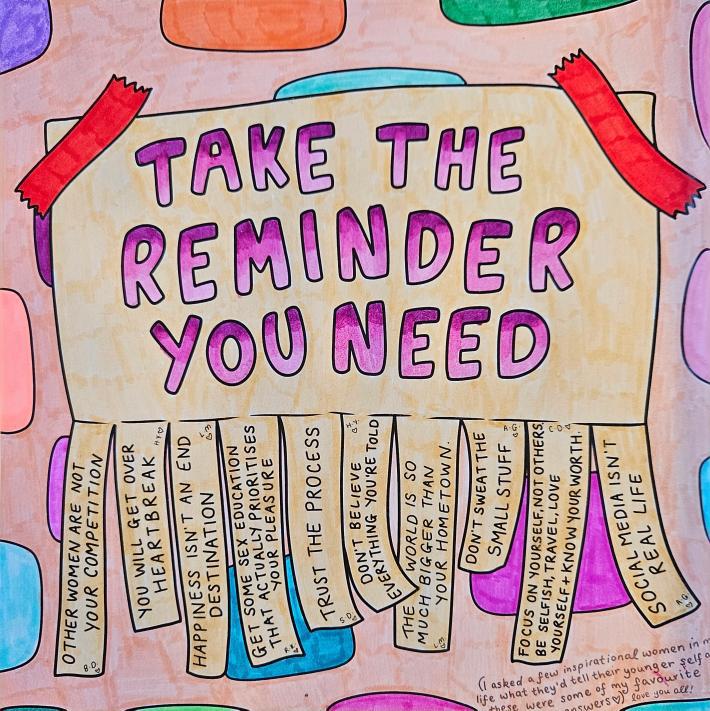 TAKE THE
REMINDER
YOU NEED
OTHER WOMEN ARE NOT
YOUR COMPETITION
B.D
YOU WILL GET OVER
HEARTBREAK
HAPPINESS ISN'T AN END
DESTINATION
GET SOME SEX EDUCATION
THAT ACTUALLY PRIORITISES
YOUR PLEASURE
TRUST THE PROCESS
S.D
DON'T BELIEVE
EVERYTHING YOU'RE TOLD
THE WORLD IS SO
MUCH BIGGER THAN
YOUR HOMETOWN.
DON'T SWEAT THE
SMALL STUFF
A.G
FOCUS ON YOURSELF, NOT OTHERS,
BE SELFISH, TRAVEL, LOVE
YOURSELF + KNOW YOUR WORTH.
SOCIAL MEDIA ISN'T
REAL LIFE
A.G
(I asked a few inspirational women in
life what they'd tell their younger self
these were some of my favourite
answers♡) love you all!